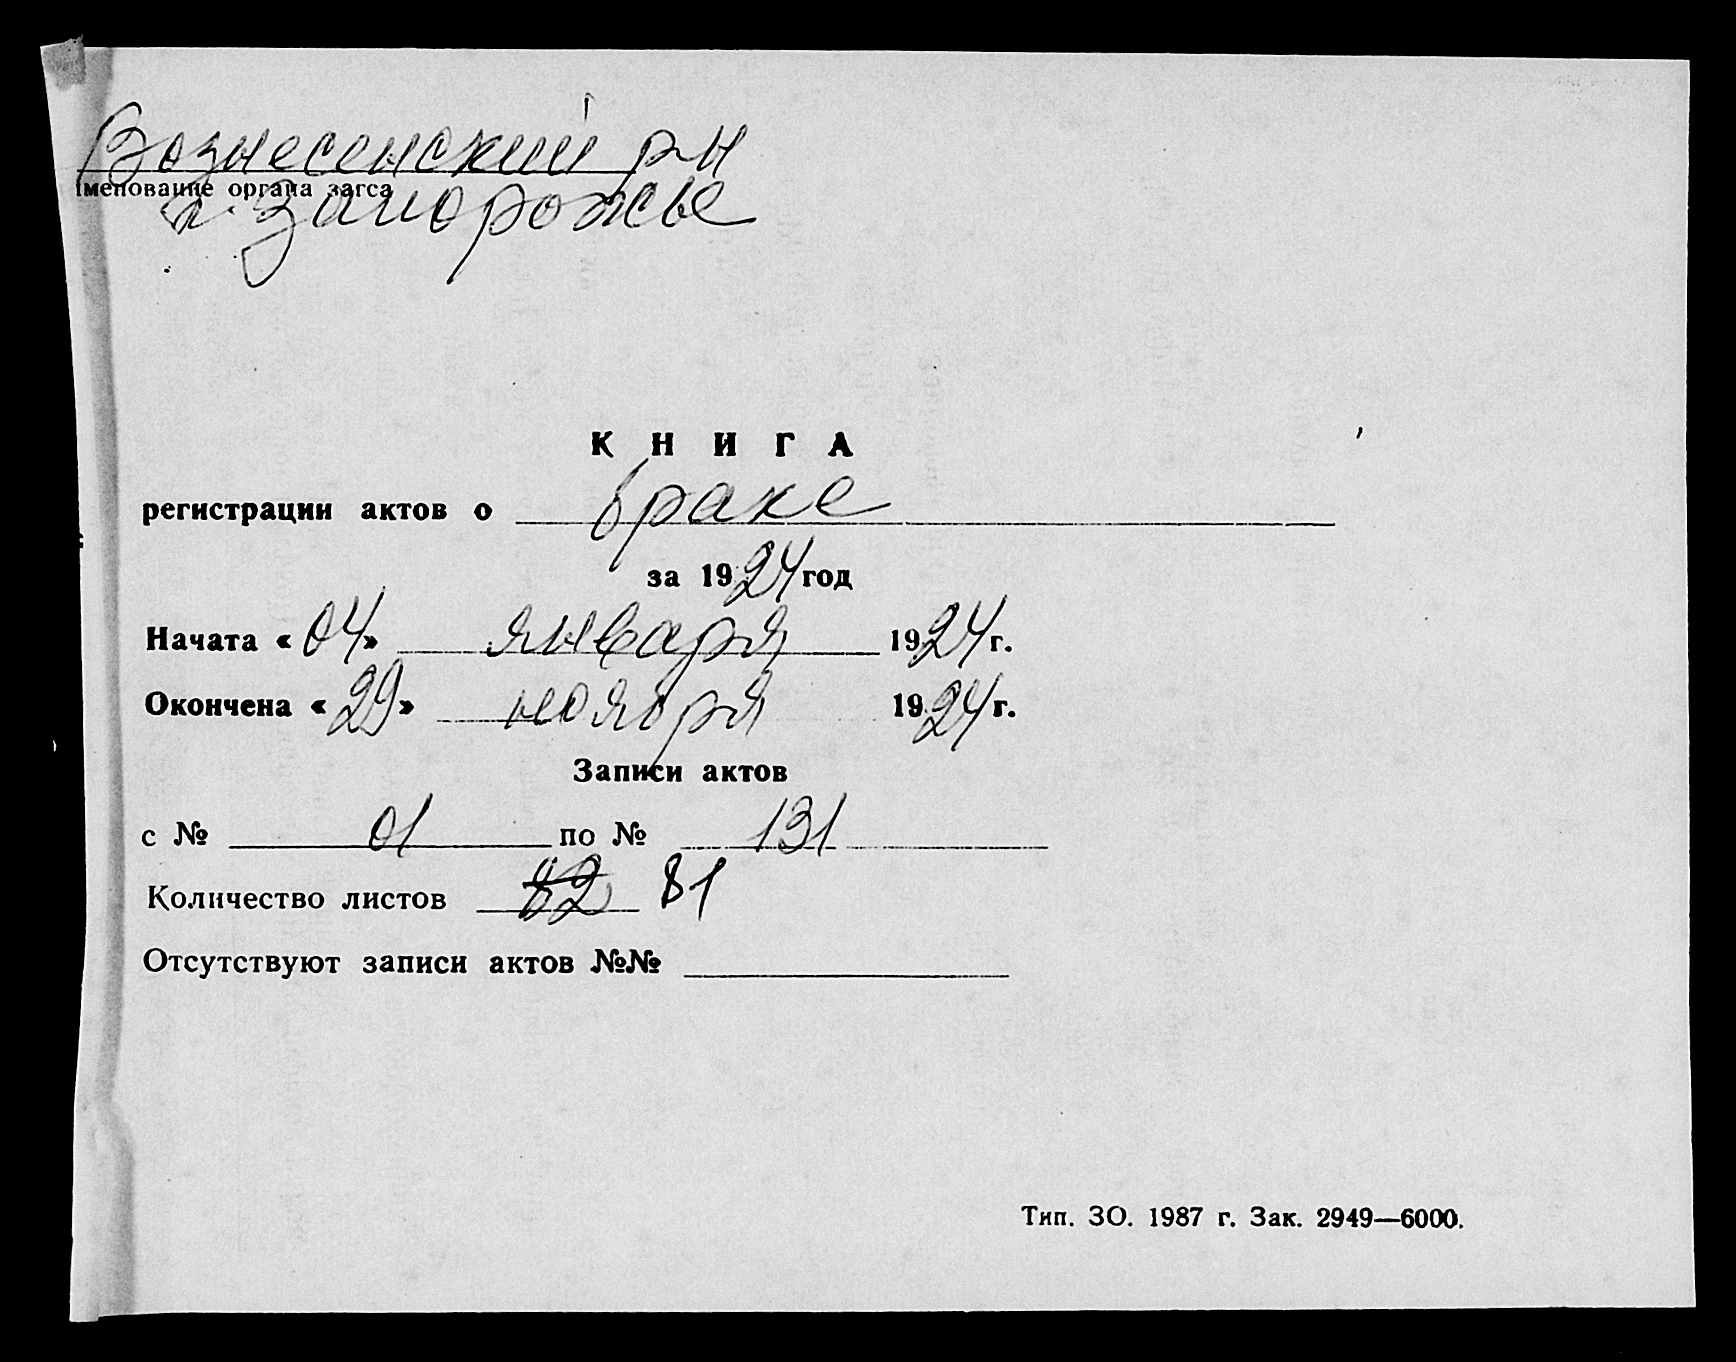 Вознесенский р-н
именование органа загса
г. Запорожье
КНИГА
регистрации актов о браке
за 1924 год
Начата «04» января 1924 г.
Окончена «29» ноября 1924 г.
Записи актов
с № 01 по № 131
Количество листов 82 81
Отсутствуют записи актов №№
Тип. ЗО. 1987 г. Зак. 2949—6000.